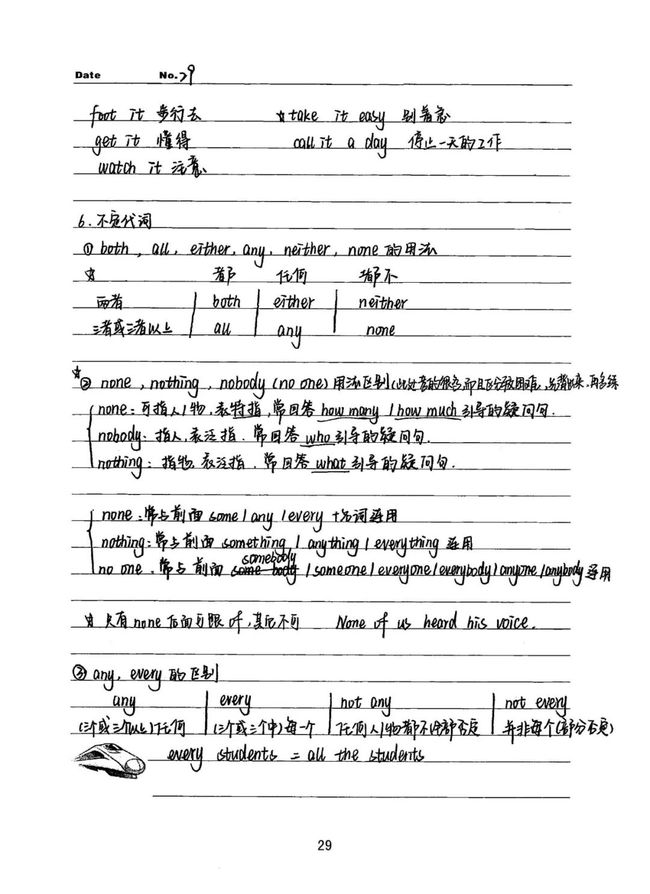 Date No. 29
foot it 步行去 ☆take it easy 别着急
get it 懂得 call it a day 停止一天的工作
watch it 注意
6. 不定代词
① both , all , either , any , neither , none 的用法
☆ 都 任何 都不
两者 both either neither
三者或三者以上 all any none
☆② none , nothing , nobody (no one) 用法区别(此处考的很多,而且区分较困难,
none: 可指人/物,表特指,常回答 how many / how much 引导的疑问句.
nobody: 指人,表泛指. 常回答 who 引导的疑问句.
nothing: 指物,表泛指. 常回答 what 引导的疑问句.
none: 常与前面 some / any / every +名词连用
nothing: 常与前面 something / anything / everything 连用
somebody
no one. 常与前面 some body / someone / everyone / everybody / anyone / anybody 连用
☆ 只有none后面可跟of,其它不可 None of us heard his voice.
③ any, every 的区别
any every not any not every
(三个或三个以上)任何 (三个或三个中)每一个 任何人/物都不(全部否定) 并非每个(部分否定)
every students = all the students
29